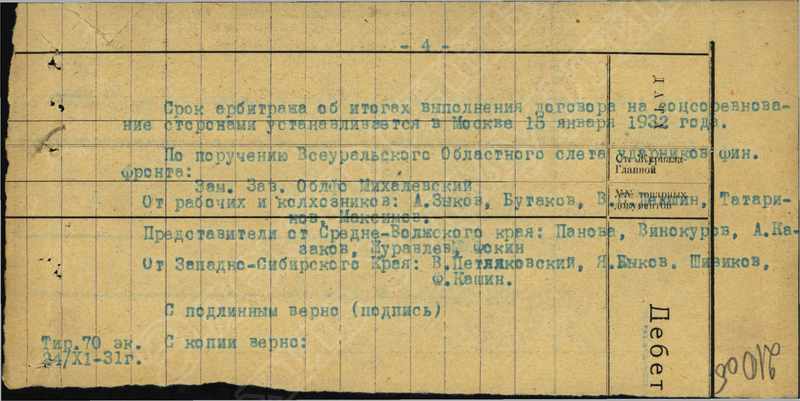 - 4 -
Срок арбитража об итогах выполнения договора на соцсоревнова-
ние сторонами устанавливается в Москве 15 января 1932 года.
По поручению Всеуральского Областного слета ударников фин.
фронта:
Зам. Зав. Облфо Михалевский
От рабочих и колхозников: А.Зыков, Бутаков, Татари-
нов, Максимов.
Представители от Средне-Волжского края: Панова, Винокуров, А.Ка-
заков, Журавлев, Фокин
От Западно-Сибирского Края: В.Петляковский, Я.Быков. Шивиков,
Ф.Кашин.
С подлинным верно (подпись)
Тир.70 эк. С копии верно:
24/X1-31г.
Ст. Журнала
Главной
№№ товарных
документов
Дебет